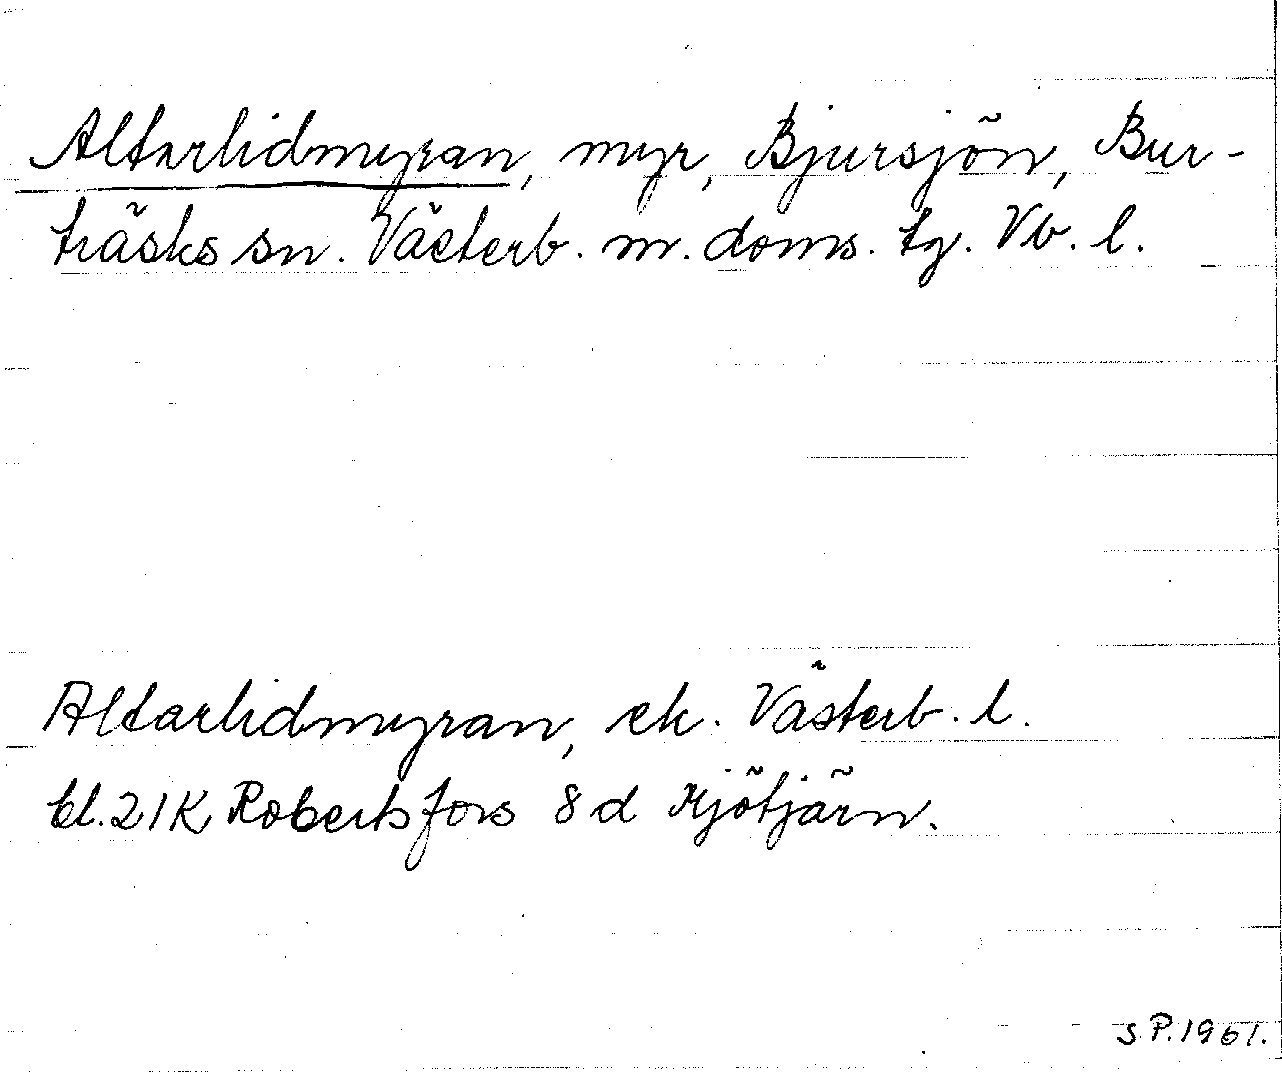 Altarlidmyran, myr, Bjursjön, Bur-
träsks sn. Västerb. m. doms. tg. Vb. l.
Altarlidmyran, ek. Västerb. l.
bl. 21K Robertsfors 8 d Kjötjärn.
S P. 1961.